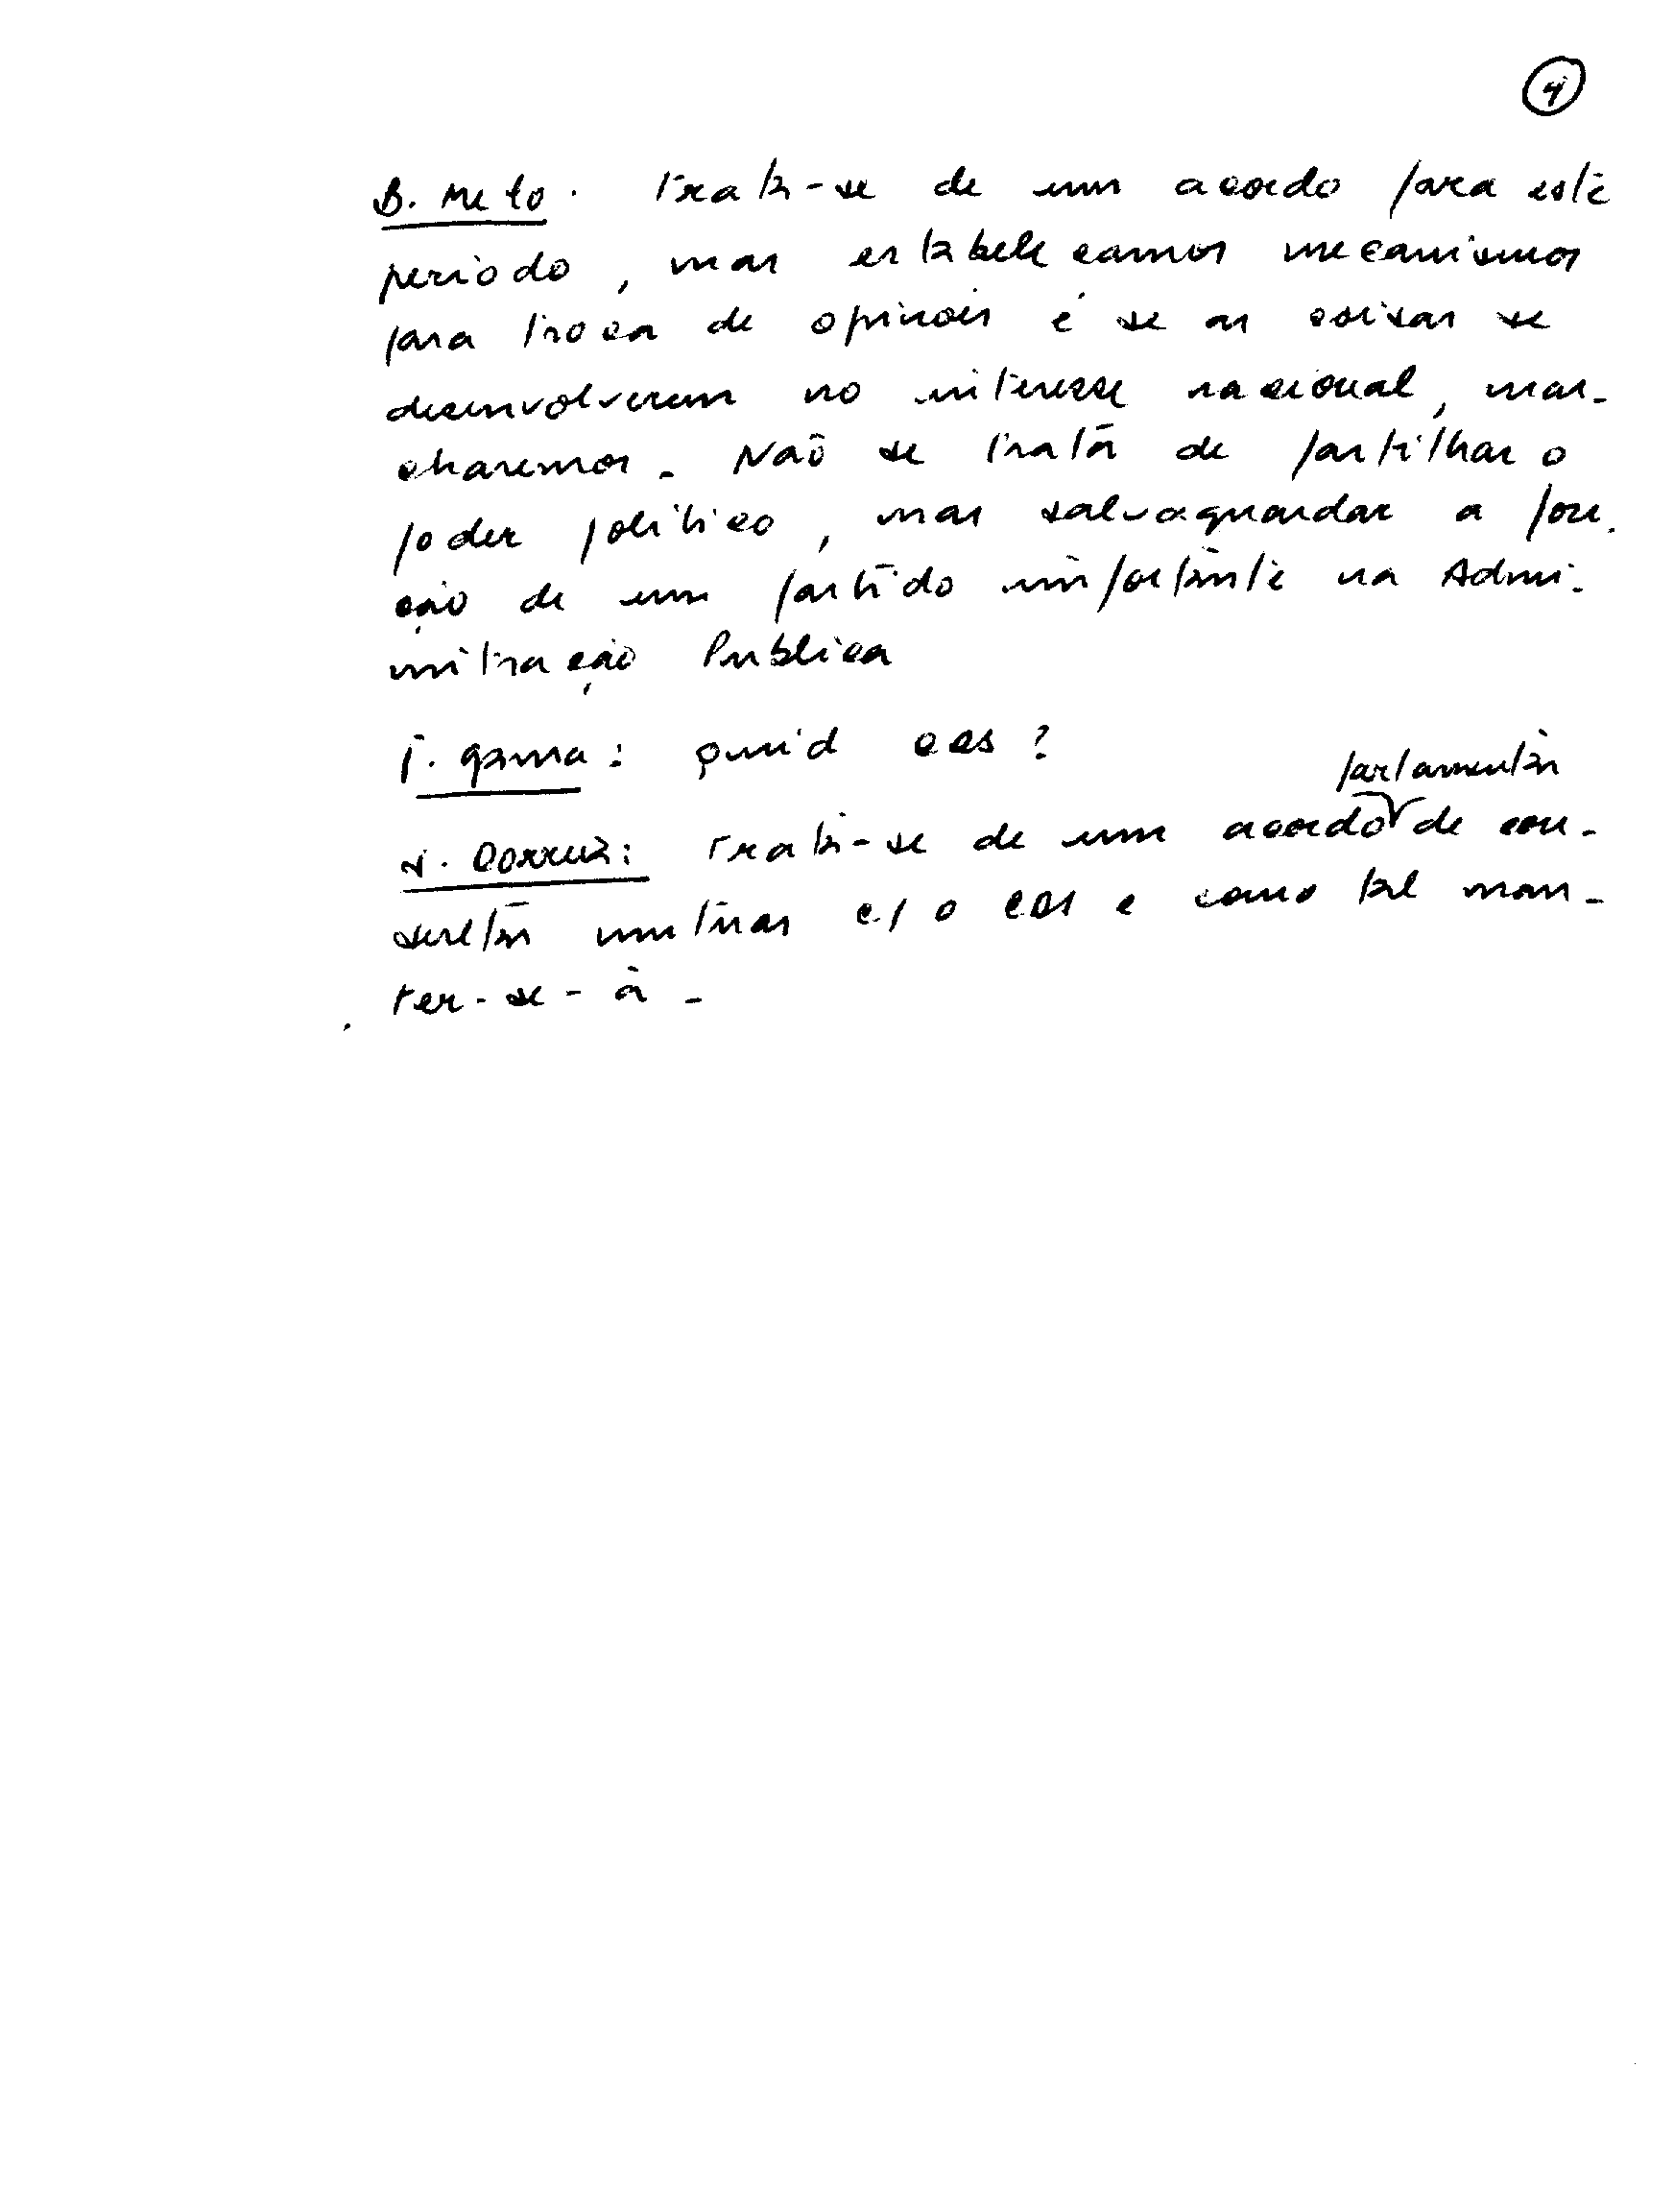 4
B. Melo. Trata-se de um acordo para este
periodo, mas estabelecamos mecanismos
para troca de opiniões e se as coisas se
desenvolverem no interesse nacional, mar-
charemos. Não se trata de partilhar o
poder politico, mas salvaguardar a posi-
ção de um partido importante na Admi-
nistração Publica
J. Gama: quid CDS?
parlamentar
Trata-se de um acordo de con-
sultas mutuas c/ o CDS e como tal man-
ter-se-à.